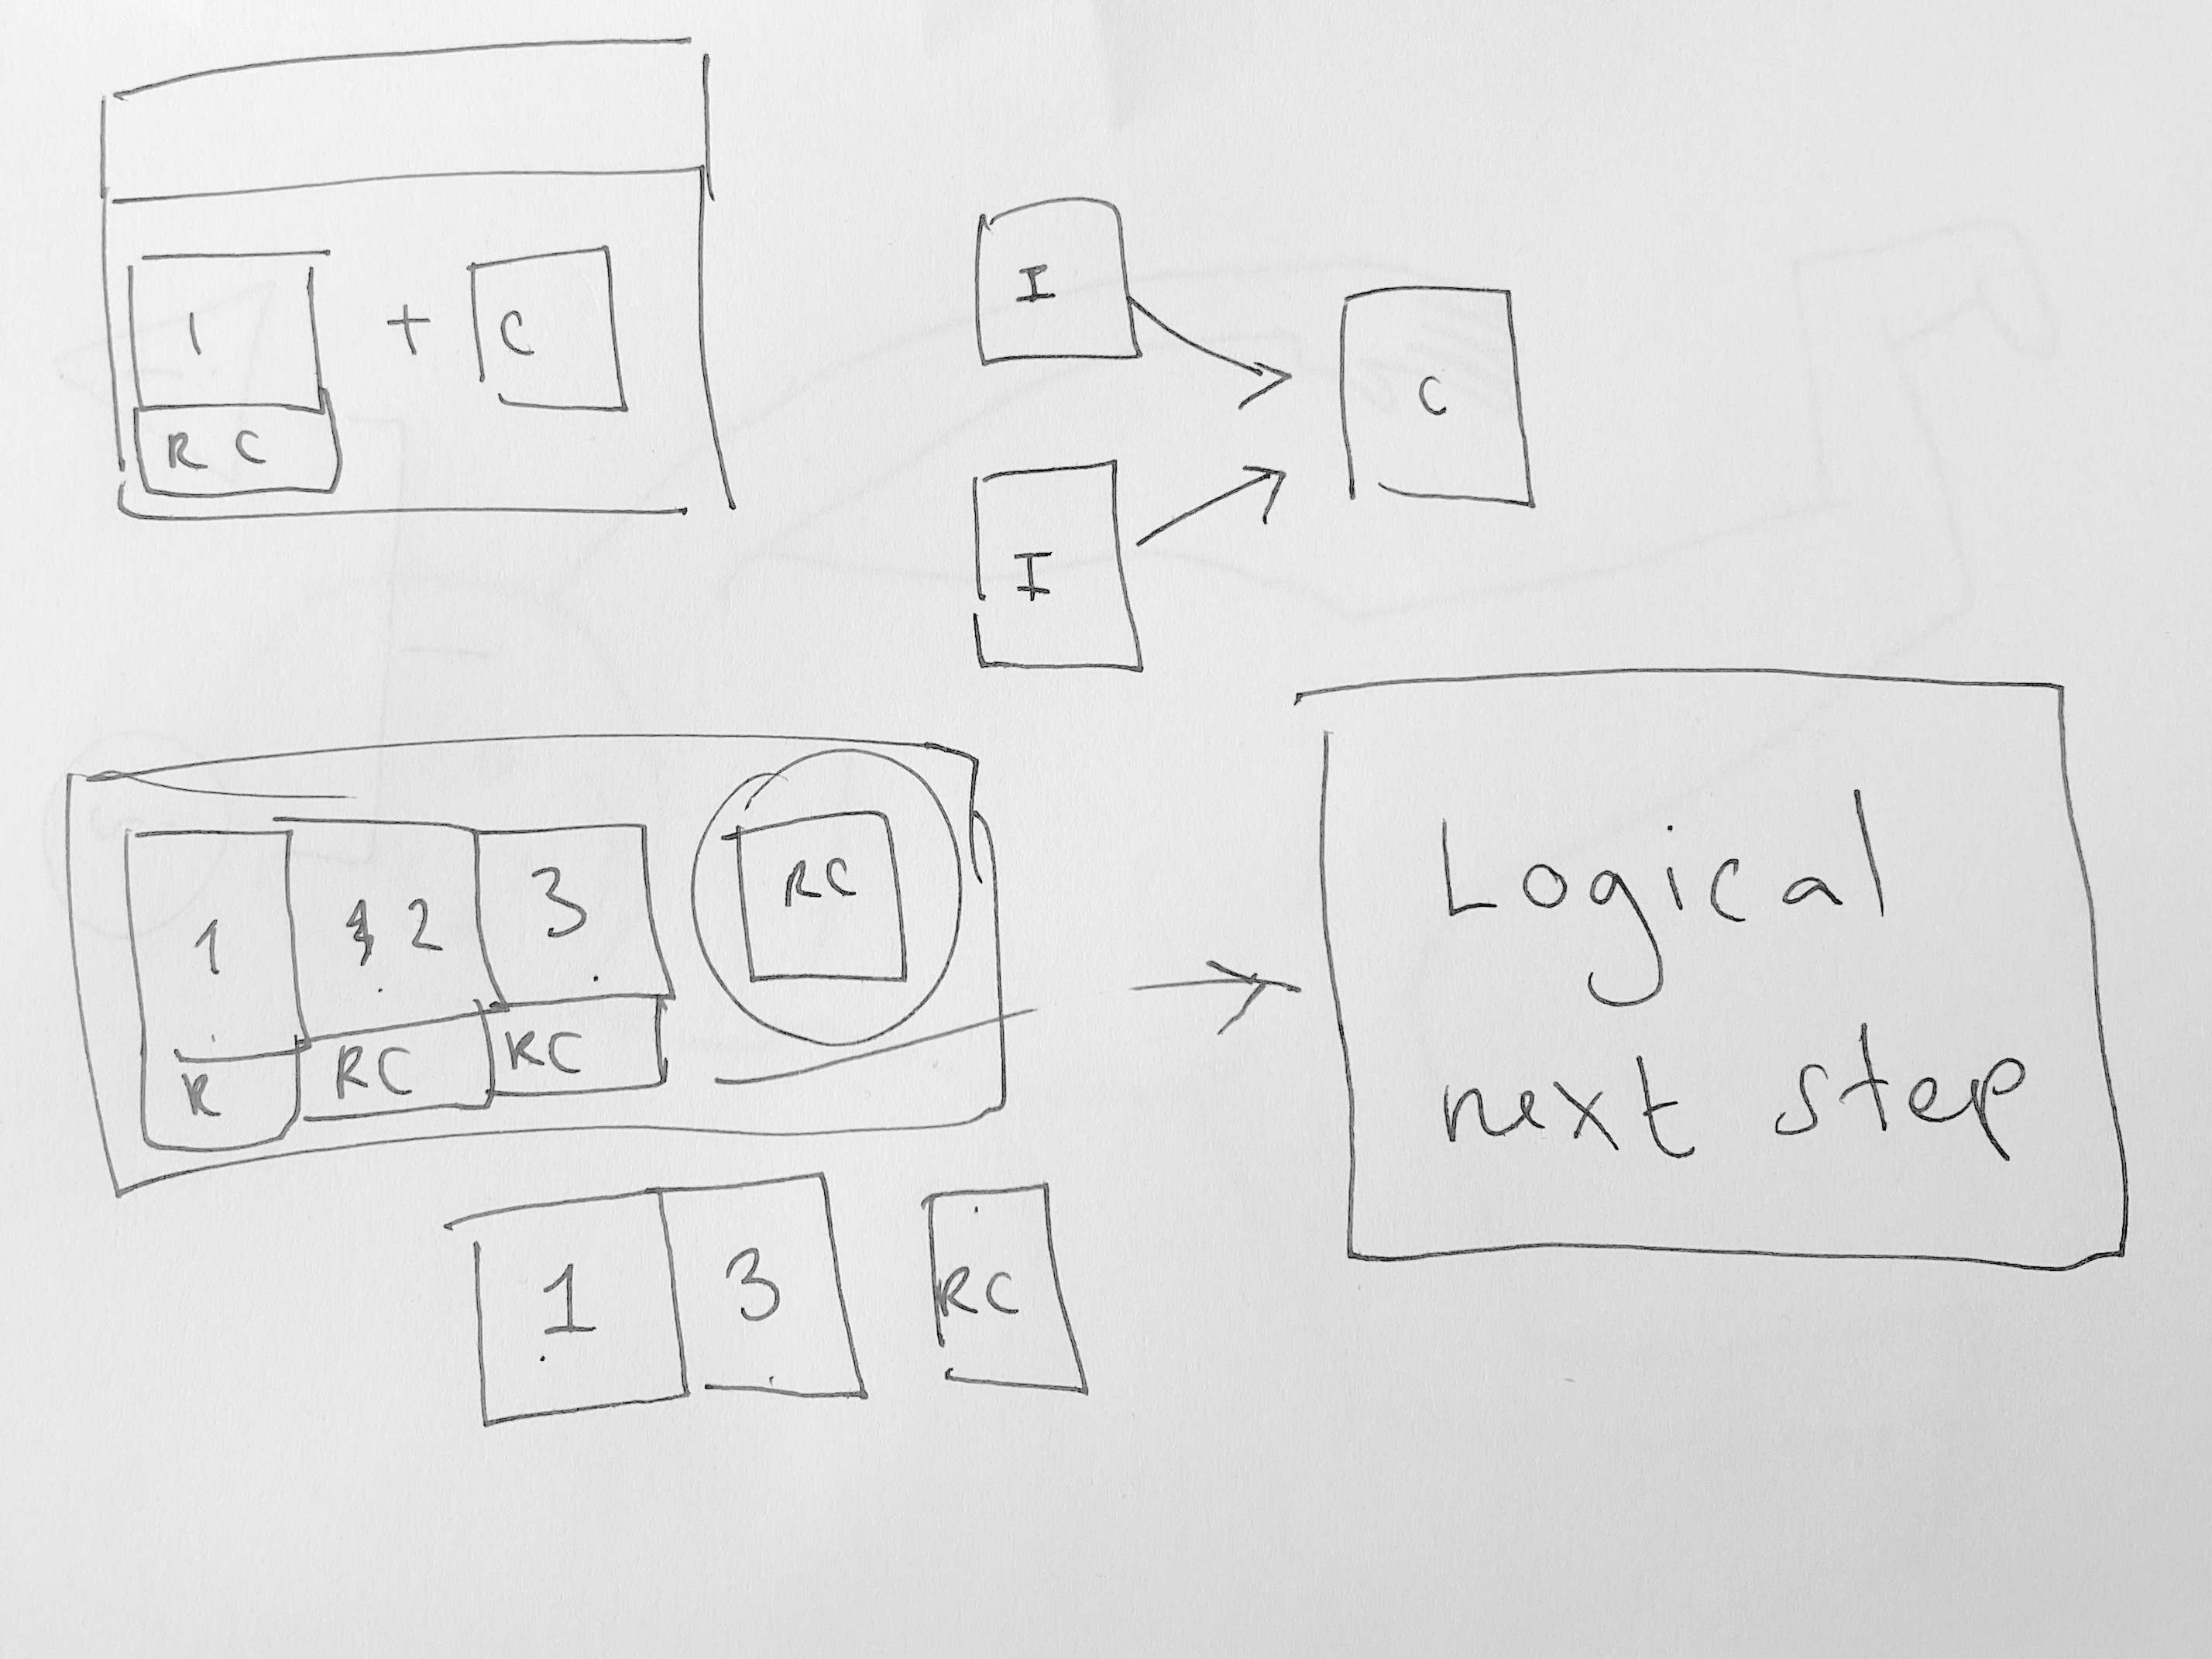 1 + C
RC
I
C
I
1 2 3 RC
R RC RC
Logical
next step
1 3 RC